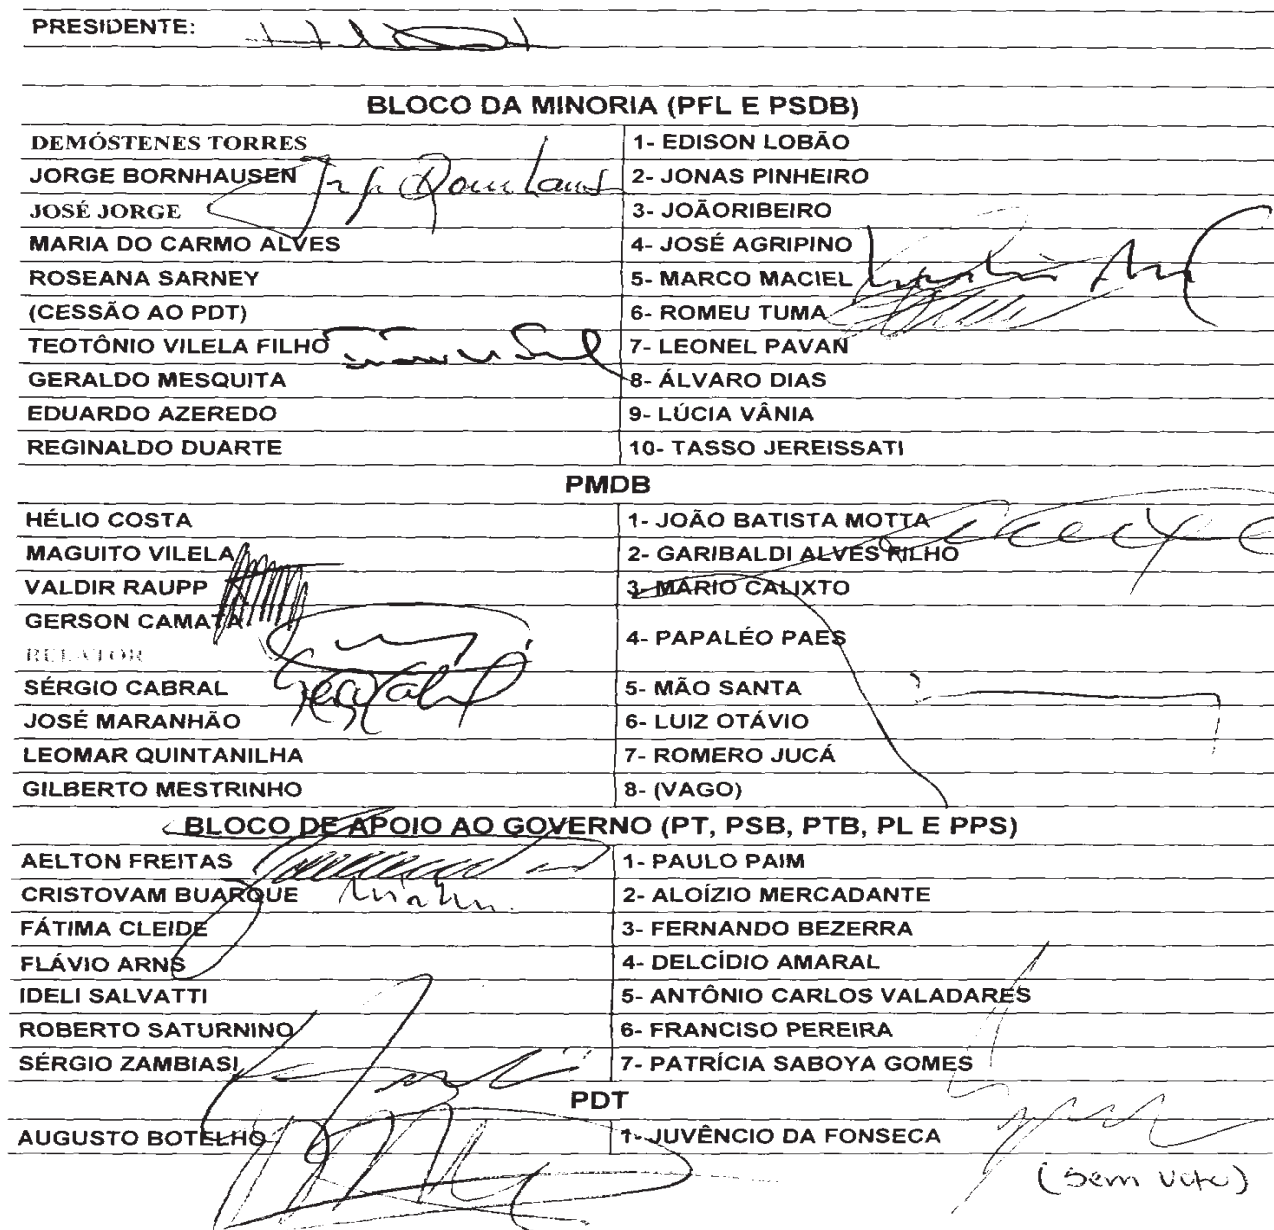 PRESIDENTE:
BLOCO DA MINORIA (PFL E PSDB)
DEMÓSTENES TORRES 1- EDISON LOBÃO
JORGE BORNHAUSEN 2- JONAS PINHEIRO
JOSÉ JORGE 3- JOÃORIBEIRO
MARIA DO CARMO ALVES 4- JOSÉ AGRIPINO
ROSEANA SARNEY 5- MARCO MACIEL
(CESSÃO AO PDT) 6- ROMEU TUMA
TEOTÔNIO VILELA FILHO 7- LEONEL PAVAN
GERALDO MESQUITA 8- ÁLVARO DIAS
EDUARDO AZEREDO 9- LÚCIA VÂNIA
REGINALDO DUARTE 10- TASSO JEREISSATI
PMDB
HÉLIO COSTA 1- JOÃO BATISTA MOTTA
MAGUITO VILELA 2- GARIBALDI ALVES FILHO
VALDIR RAUPP 3- MÁRIO CALIXTO
GERSON CAMATA 4- PAPALÉO PAES
RELATOR
SÉRGIO CABRAL 5- MÃO SANTA
JOSÉ MARANHÃO 6- LUIZ OTÁVIO
LEOMAR QUINTANILHA 7- ROMERO JUCÁ
GILBERTO MESTRINHO 8- (VAGO)
BLOCO DE APOIO AO GOVERNO (PT, PSB, PTB, PL E PPS)
AELTON FREITAS 1- PAULO PAIM
CRISTOVAM BUARQUE 2- ALOÍZIO MERCADANTE
FÁTIMA CLEIDE 3- FERNANDO BEZERRA
FLÁVIO ARNS 4- DELCÍDIO AMARAL
IDELI SALVATTI 5- ANTÔNIO CARLOS VALADARES
ROBERTO SATURNINO 6- FRANCISO PEREIRA
SÉRGIO ZAMBIASI 7- PATRÍCIA SABOYA GOMES
PDT
AUGUSTO BOTELHO 1- JUVÊNCIO DA FONSECA
(Sem voto)